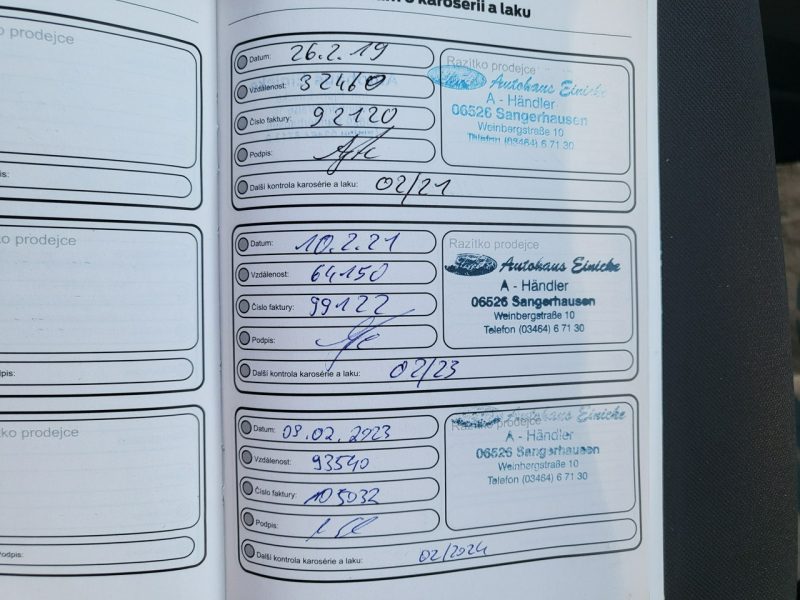 o karosérii a laku
zko prodejce
is:
Datum: 26.2.19
Vzdálenost: 32460
Číslo faktury: 92120
Podpis:
Další kontrola karosérie a laku: 02/21
Razítko prodejce
Autohaus Einicke
A - Händler
06526 Sangerhausen
Weinbergstraße 10
Telefon (03464) 6 71 30
ko prodejce
pis:
Datum: 10.2.21
Vzdálenost: 64150
Číslo faktury: 99122
Podpis:
Další kontrola karosérie a laku: 02/23
Razítko prodejce
Autohaus Einicke
A - Händler
06526 Sangerhausen
Weinbergstraße 10
Telefon (03464) 6 71 30
tko prodejce
Podpis:
Datum: 09.02.2023
Vzdálenost: 93540
Číslo faktury: 105032
Podpis:
Další kontrola karosérie a laku: 02/2024
Razítko prodejce
Autohaus Einicke
A - Händler
06526 Sangerhausen
Weinbergstraße 10
Telefon (03464) 6 71 30